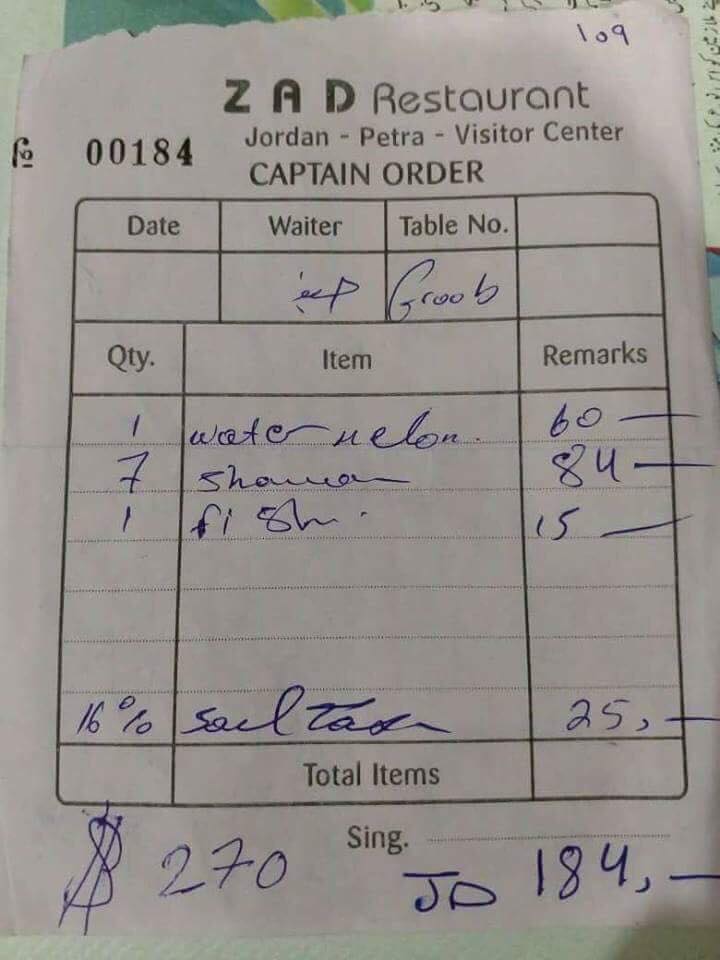 109
ZAD Restaurant
Jordan - Petra - Visitor Center
№ 00184
CAPTAIN ORDER
Date Waiter Table No.
Groob
Qty. Item Remarks
1 water melon. 60
7 84
1 fish. 15
16% 25,
Total Items
Sing.
$ 270 JD 184,